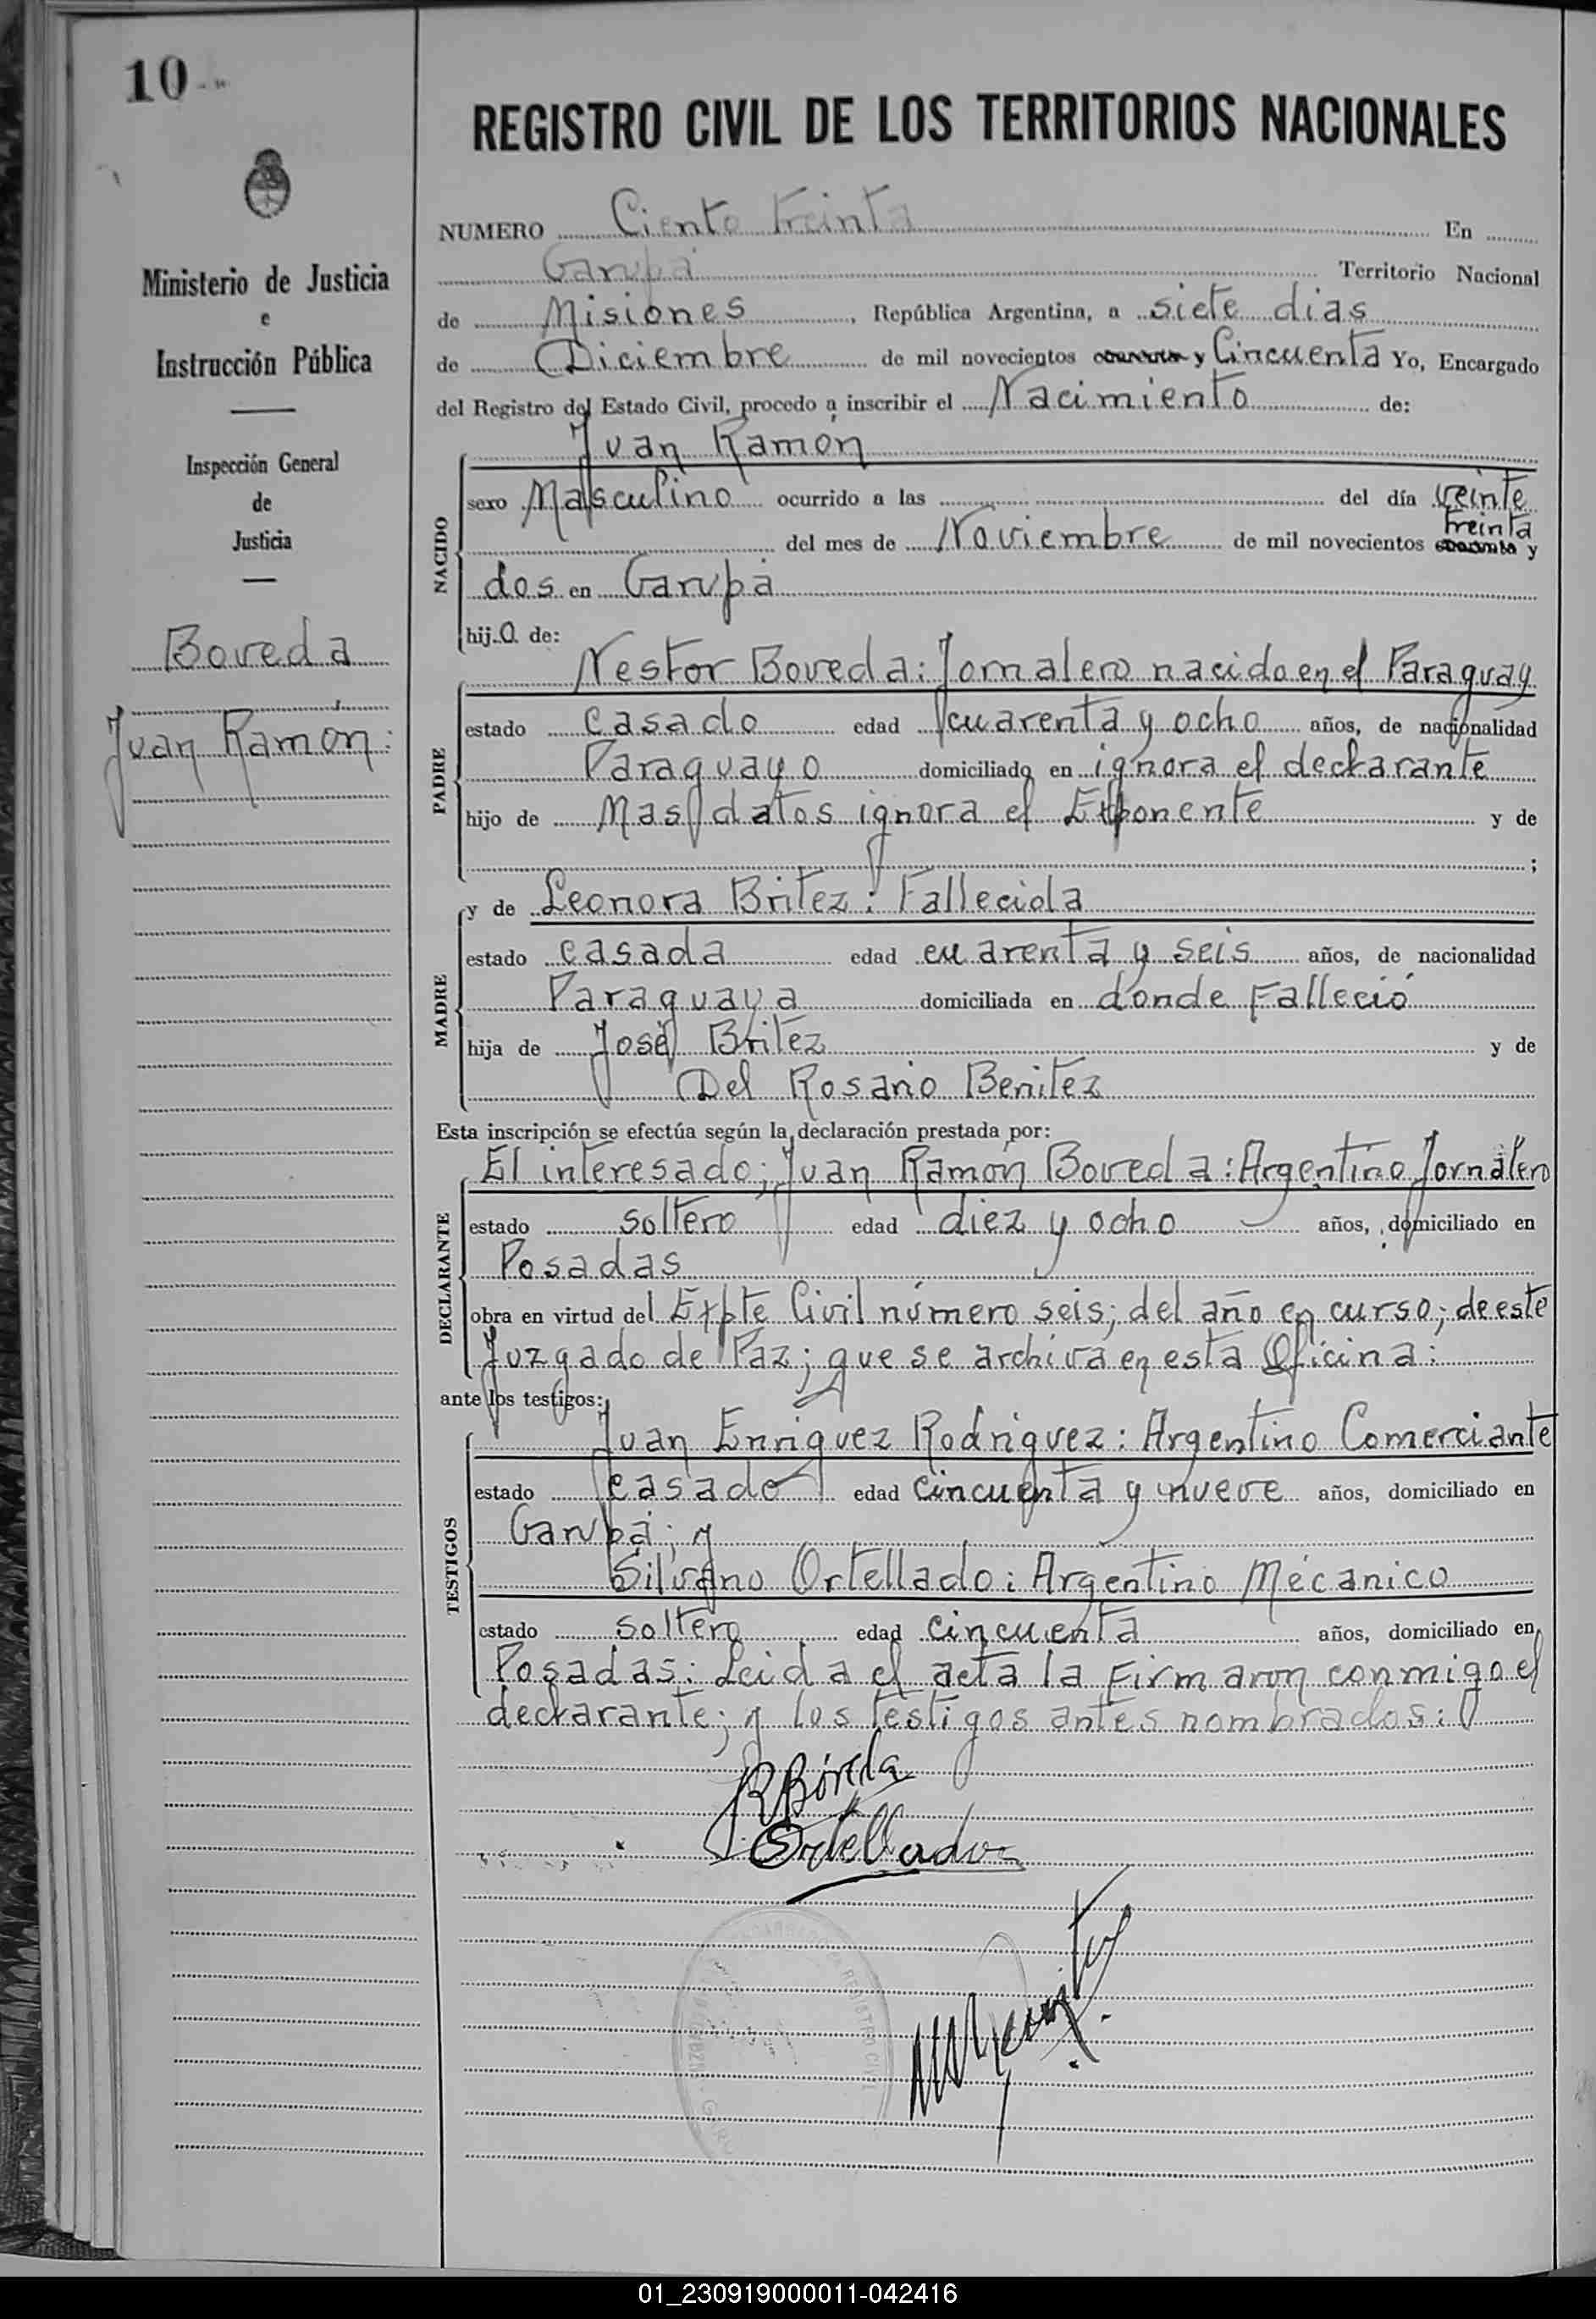 10
REGISTRO CIVIL DE LOS TERRITORIOS NACIONALES
Ministerio de Justicia
e
Instrucción Pública
Inspección General
de
Justicia
Boveda
Juan Ramón:
NUMERO Ciento treinta En
Garupá Territorio Nacional
de Misiones, República Argentina, a siete dias
de Diciembre de mil novecientos y Cincuenta Yo, Encargado
del Registro del Estado Civil, procedo a inscribir el Nacimiento de:
NACIDO
Juan Ramón
sexo Masculino ocurrido a las del día veinte
treinta
del mes de Noviembre de mil novecientos cuarenta y
dos en Garupá
hijo de:
PADRE
Nestor Boveda: Jornalero nacido en el Paraguay
estado casado edad cuarenta y ocho años, de nacionalidad
Paraguayo domiciliado en ignora el declarante
hijo de Mas datos ignora el Exponente y de
;
MADRE
y de Leonora Britez: Fallecida
estado casada edad cuarenta y seis años, de nacionalidad
Paraguaya domiciliada en donde Falleció
hija de José Britez y de
Del Rosario Benitez
Esta inscripción se efectúa según la declaración prestada por:
DECLARANTE
El interesado; Juan Ramón Boveda: Argentino Jornalero
estado soltero edad diez y ocho años, domiciliado en
Posadas
obra en virtud del Expte Civil número seis; del año en curso; de este
Juzgado de Paz; que se archiva en esta Oficina:
ante los testigos:
TESTIGOS
Juan Enriquez Rodriguez: Argentino Comerciante
estado casado edad cincuenta y nueve años, domiciliado en
Garupá; y
Silvano Ortellado: Argentino Mécanico
estado soltero edad cincuenta años, domiciliado en
Posadas: Leida el acta la Firmaron conmigo el
declarante; y los testigos antes nombrados:
JRBóveda
SOrtellado
REGISTRO CIVIL
01_230919000011-042416